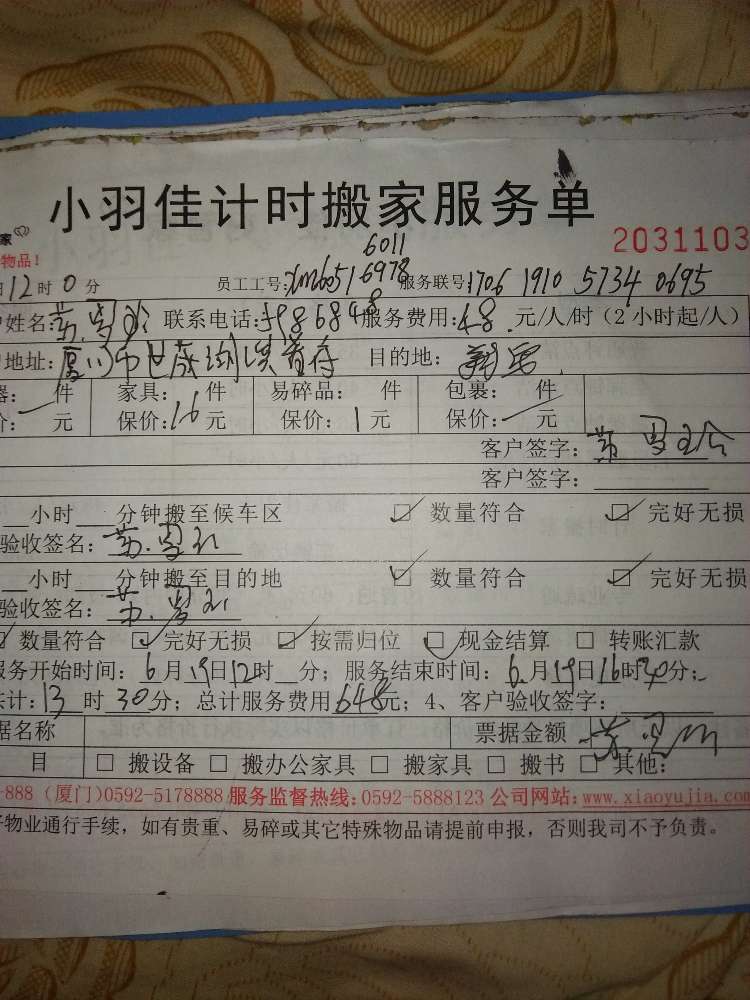 小羽佳计时搬家服务单
家
2031103
物品!
6011
月12时0分 员工工号:xm6051 6978 服务联号:1706 1910 5734 0695
户姓名: 联系电话: 服务费用:48元/人/时(2小时起/人)
地址: 目的地:
器: 件 家具: 件 易碎品: 件 包裹: 件
价: 元 保价:16元 保价:1元 保价: 元
客户签字:
客户签字:
小时 分钟搬至候车区 ☑ 数量符合 ☑ 完好无损
验收签名:
小时 分钟搬至目的地 ☑ 数量符合 ☑ 完好无损
验收签名:
☑ 数量符合 ☑ 完好无损 ☑ 按需归位 ☑ 现金结算 □ 转账汇款
服务开始时间:6月19日12时 分;服务结束时间:6月19日16时30分;
共计:13时30分;总计服务费用648元;4、客户验收签字:
据名称 票据金额
目 □ 搬设备 □ 搬办公家具 □ 搬家具 □ 搬书 □ 其他:
-888(厦门)0592-5178888 服务监督热线:0592-5888123 公司网站:www.xiaoyujia.com
好物业通行手续,如有贵重、易碎或其它特殊物品请提前申报,否则我司不予负责。